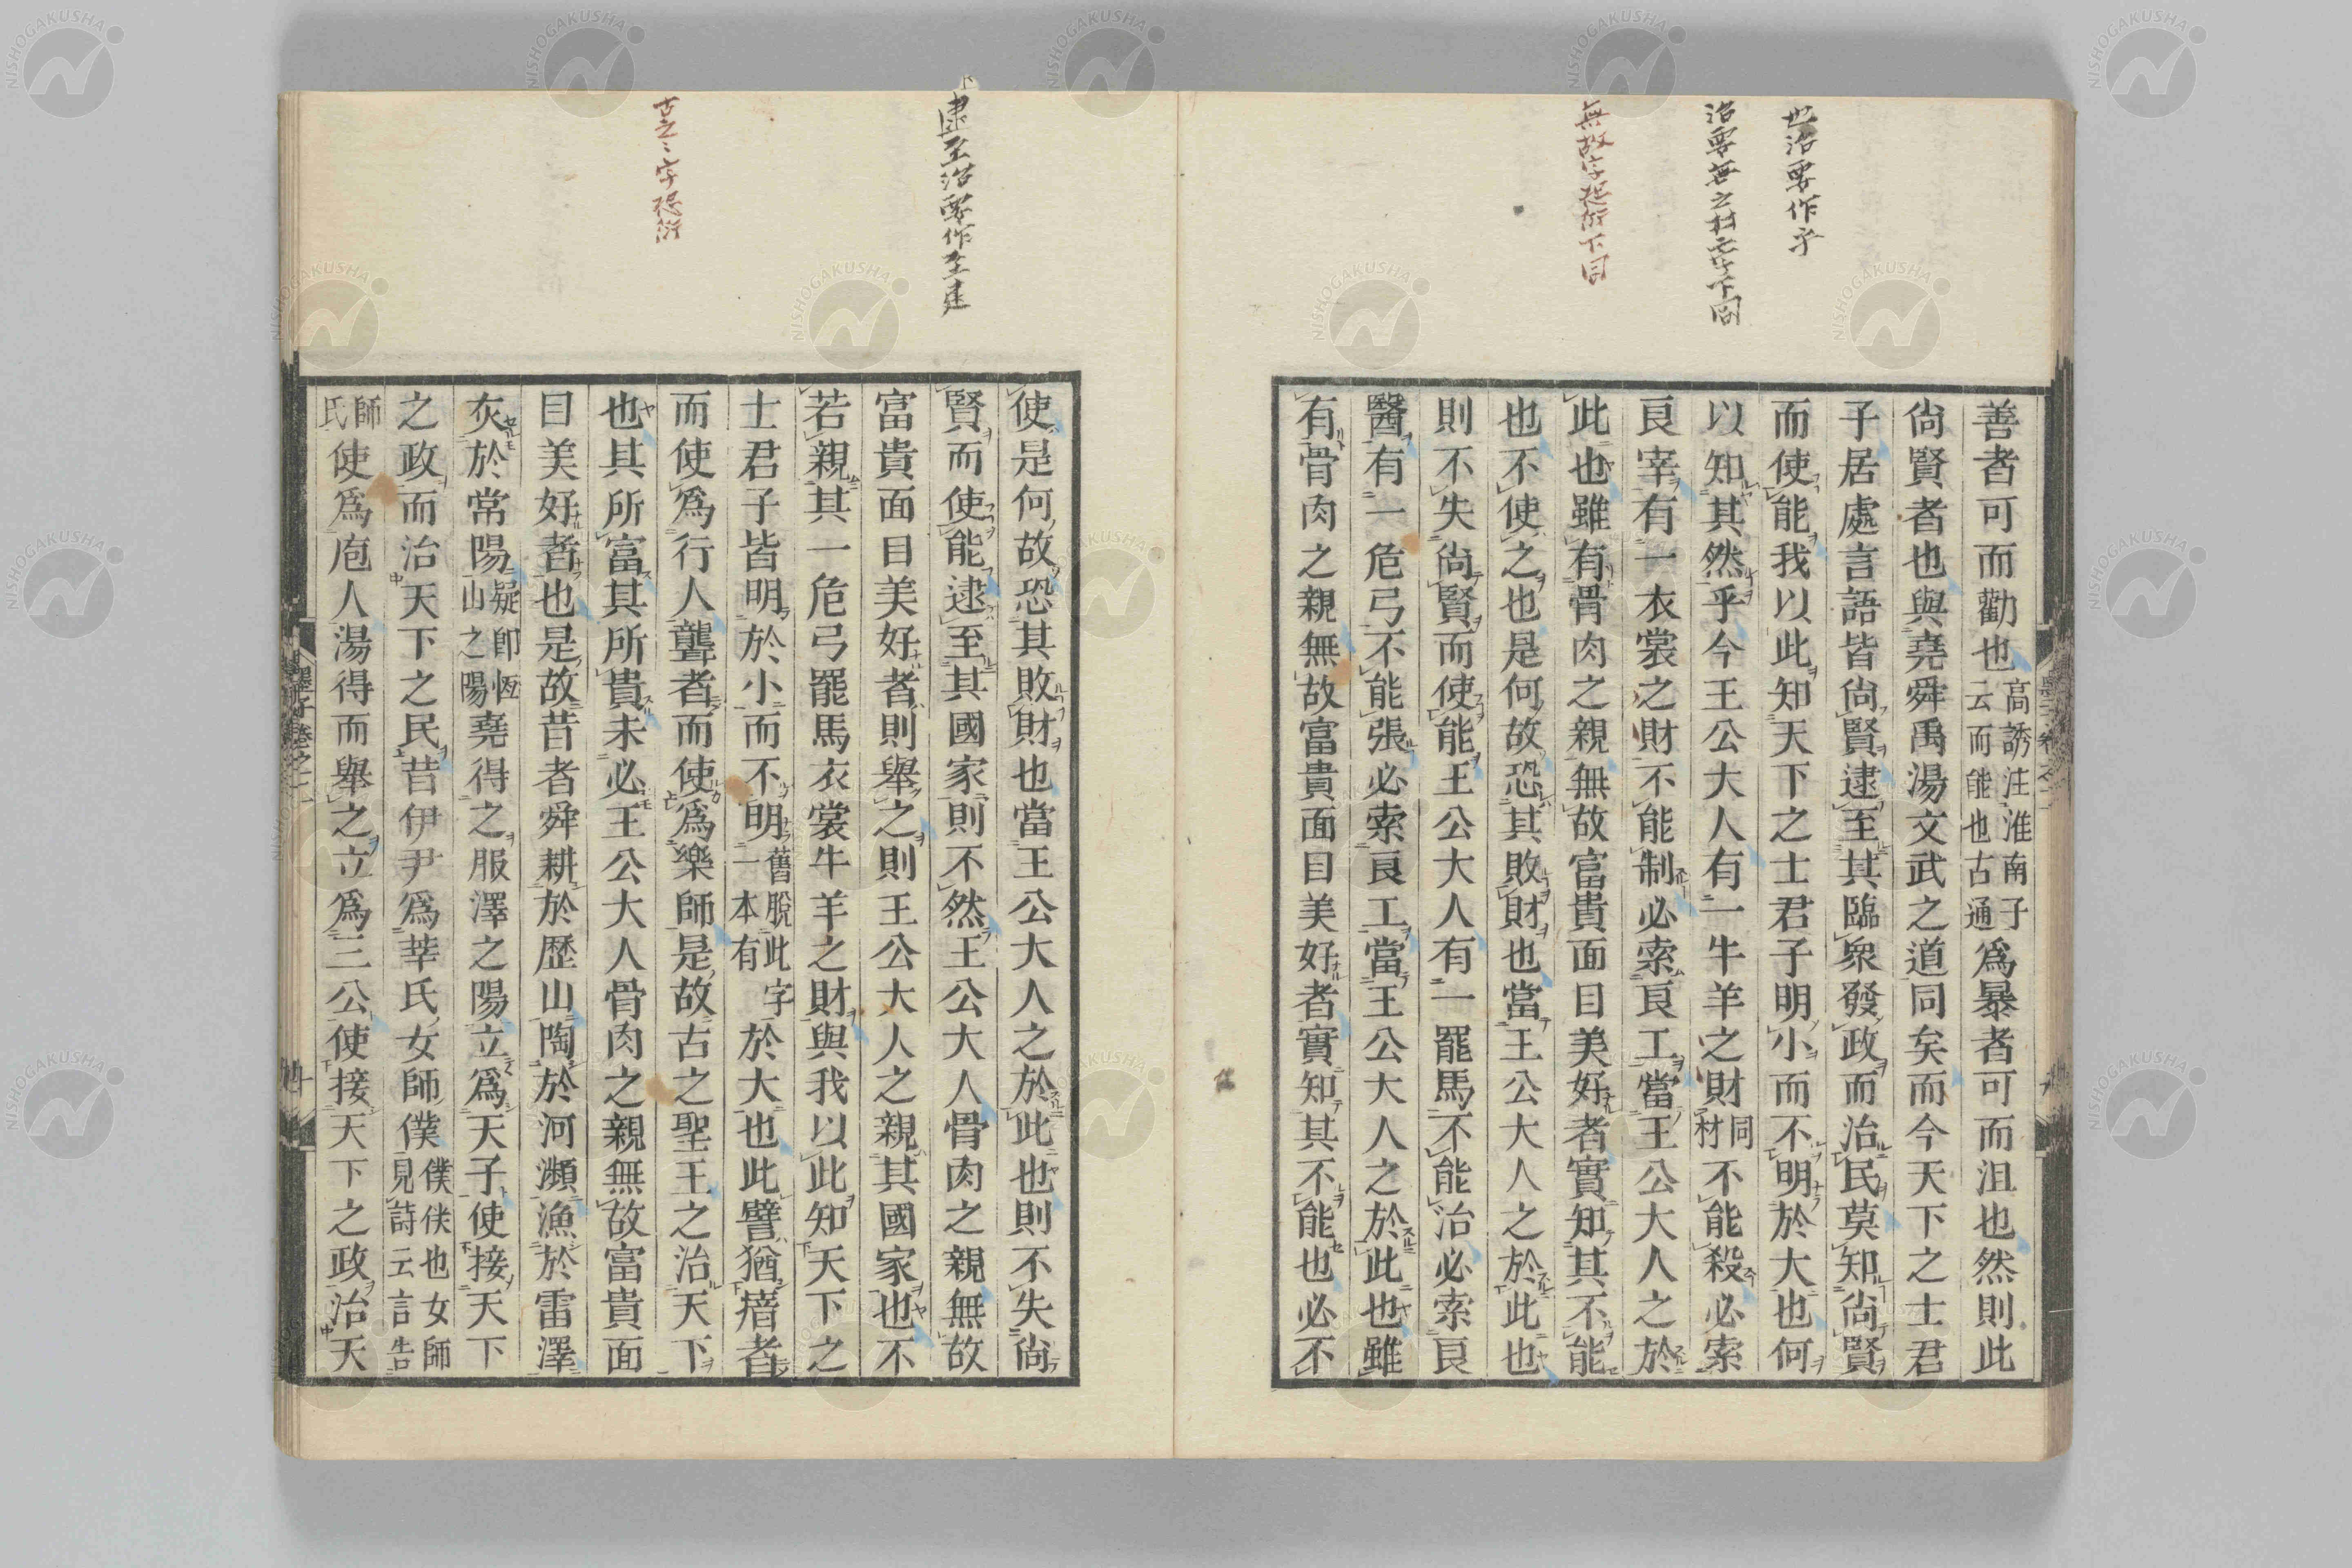 也治要作乎
治要無之材二字下同
無故字恐衍下同
善者可而勸也高誘注淮南子云而能也古通爲暴者可而沮也然則此
尙賢者也與堯舜禹湯文武之道同矣而今天下之士君
子居處言語皆尙賢逮至其臨衆發政而治民莫知尙賢
而使能我以此知天下之士君子明小而不明於大也何
以知其然乎今王公大人有一牛羊之財同材不能殺必索
良宰有一衣裳之財不能制必索良工當王公大人之於
此也雖有骨肉之親無故富貴面目美好者實知其不能
也不使之也是何故恐其敗財也當王公大人之於此也
則不失尙賢而使能王公大人有一罷馬不能治必索良
醫有一危弓不能張必索良工當王公大人之於此也雖
有骨肉之親無故富貴面目美好者實知其不能也必不
逮至治要作至建
古之二字恐衍
使是何故恐其敗財也當王公大人之於此也則不失尙
賢而使能逮至其國家則不然王公大人骨肉之親無故
富貴面目美好者則舉之則王公大人之親其國家也不
若親其一危弓罷馬衣裳牛羊之財與我以此知天下之
士君子皆明於小而不明舊脫此字一本有於大也此譬猶瘖者
而使爲行人聾者而使爲樂師是故古之聖王之治天下
也其所富其所貴未必王公大人骨肉之親無故富貴面
目美好者也是故昔者舜耕於歷山陶於河瀕漁於雷澤
灰於常陽疑卽恆山之陽堯得之服澤之陽立爲天子使接天下
之政而治天下之民昔伊尹爲莘氏女師僕僕佚也女師見詩云言告
師氏使爲庖人湯得而舉之立爲三公使接天下之政治天
墨子卷之二